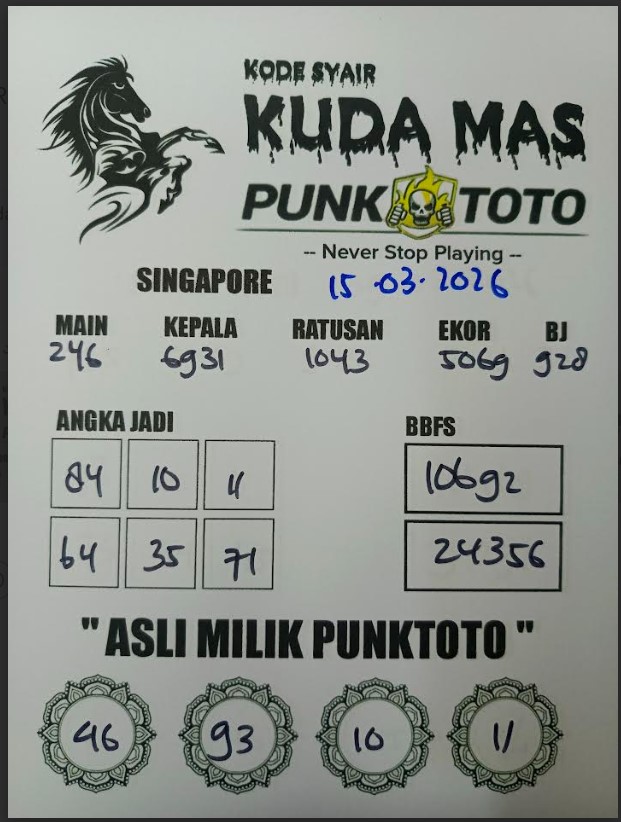 KODE SYAIR
KUDA MAS
PUNK TOTO
-- Never Stop Playing --
SINGAPORE 15 .03. 2026
MAIN KEPALA RATUSAN EKOR BJ
246 6931 1043 5069 928
ANGKA JADI BBFS
84 10 11 10692
64 35 71 24356
" ASLI MILIK PUNKTOTO "
46 93 10 11